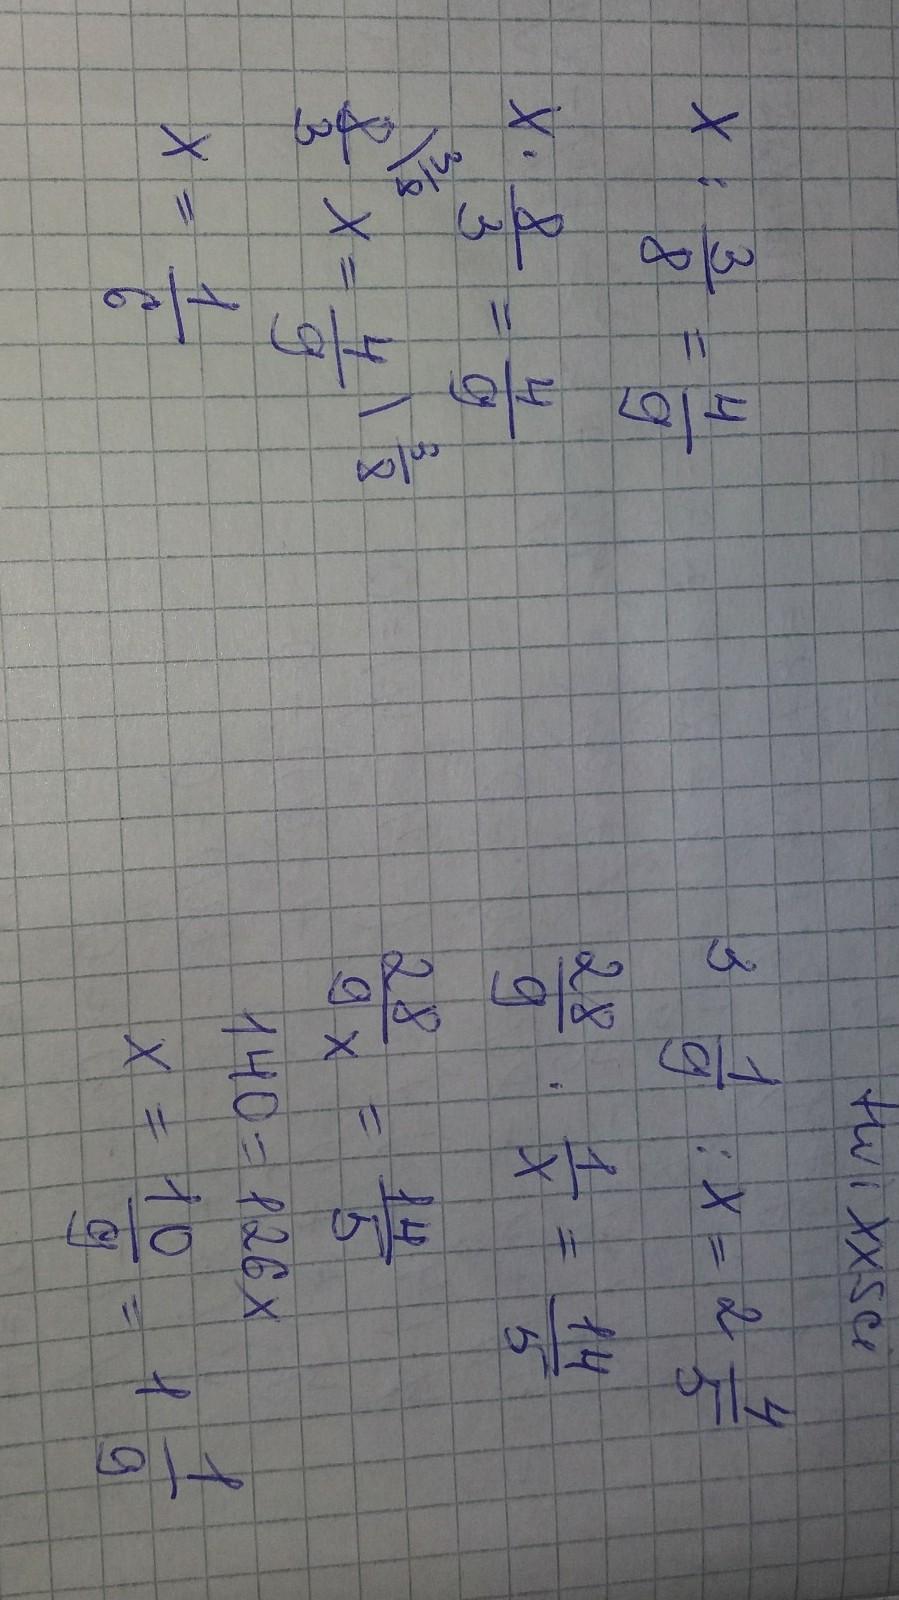 twixxsci
x : 3/8 = 4/9
x · 8/3 = 4/9
8/3 x = 4/9 \ 3/8
x = 1/6
3 1/9 : x = 2 4/5
28/9 · 1/x = 14/5
28/9x = 14/5
140 = 126x
x = 10/9 = 1 1/9